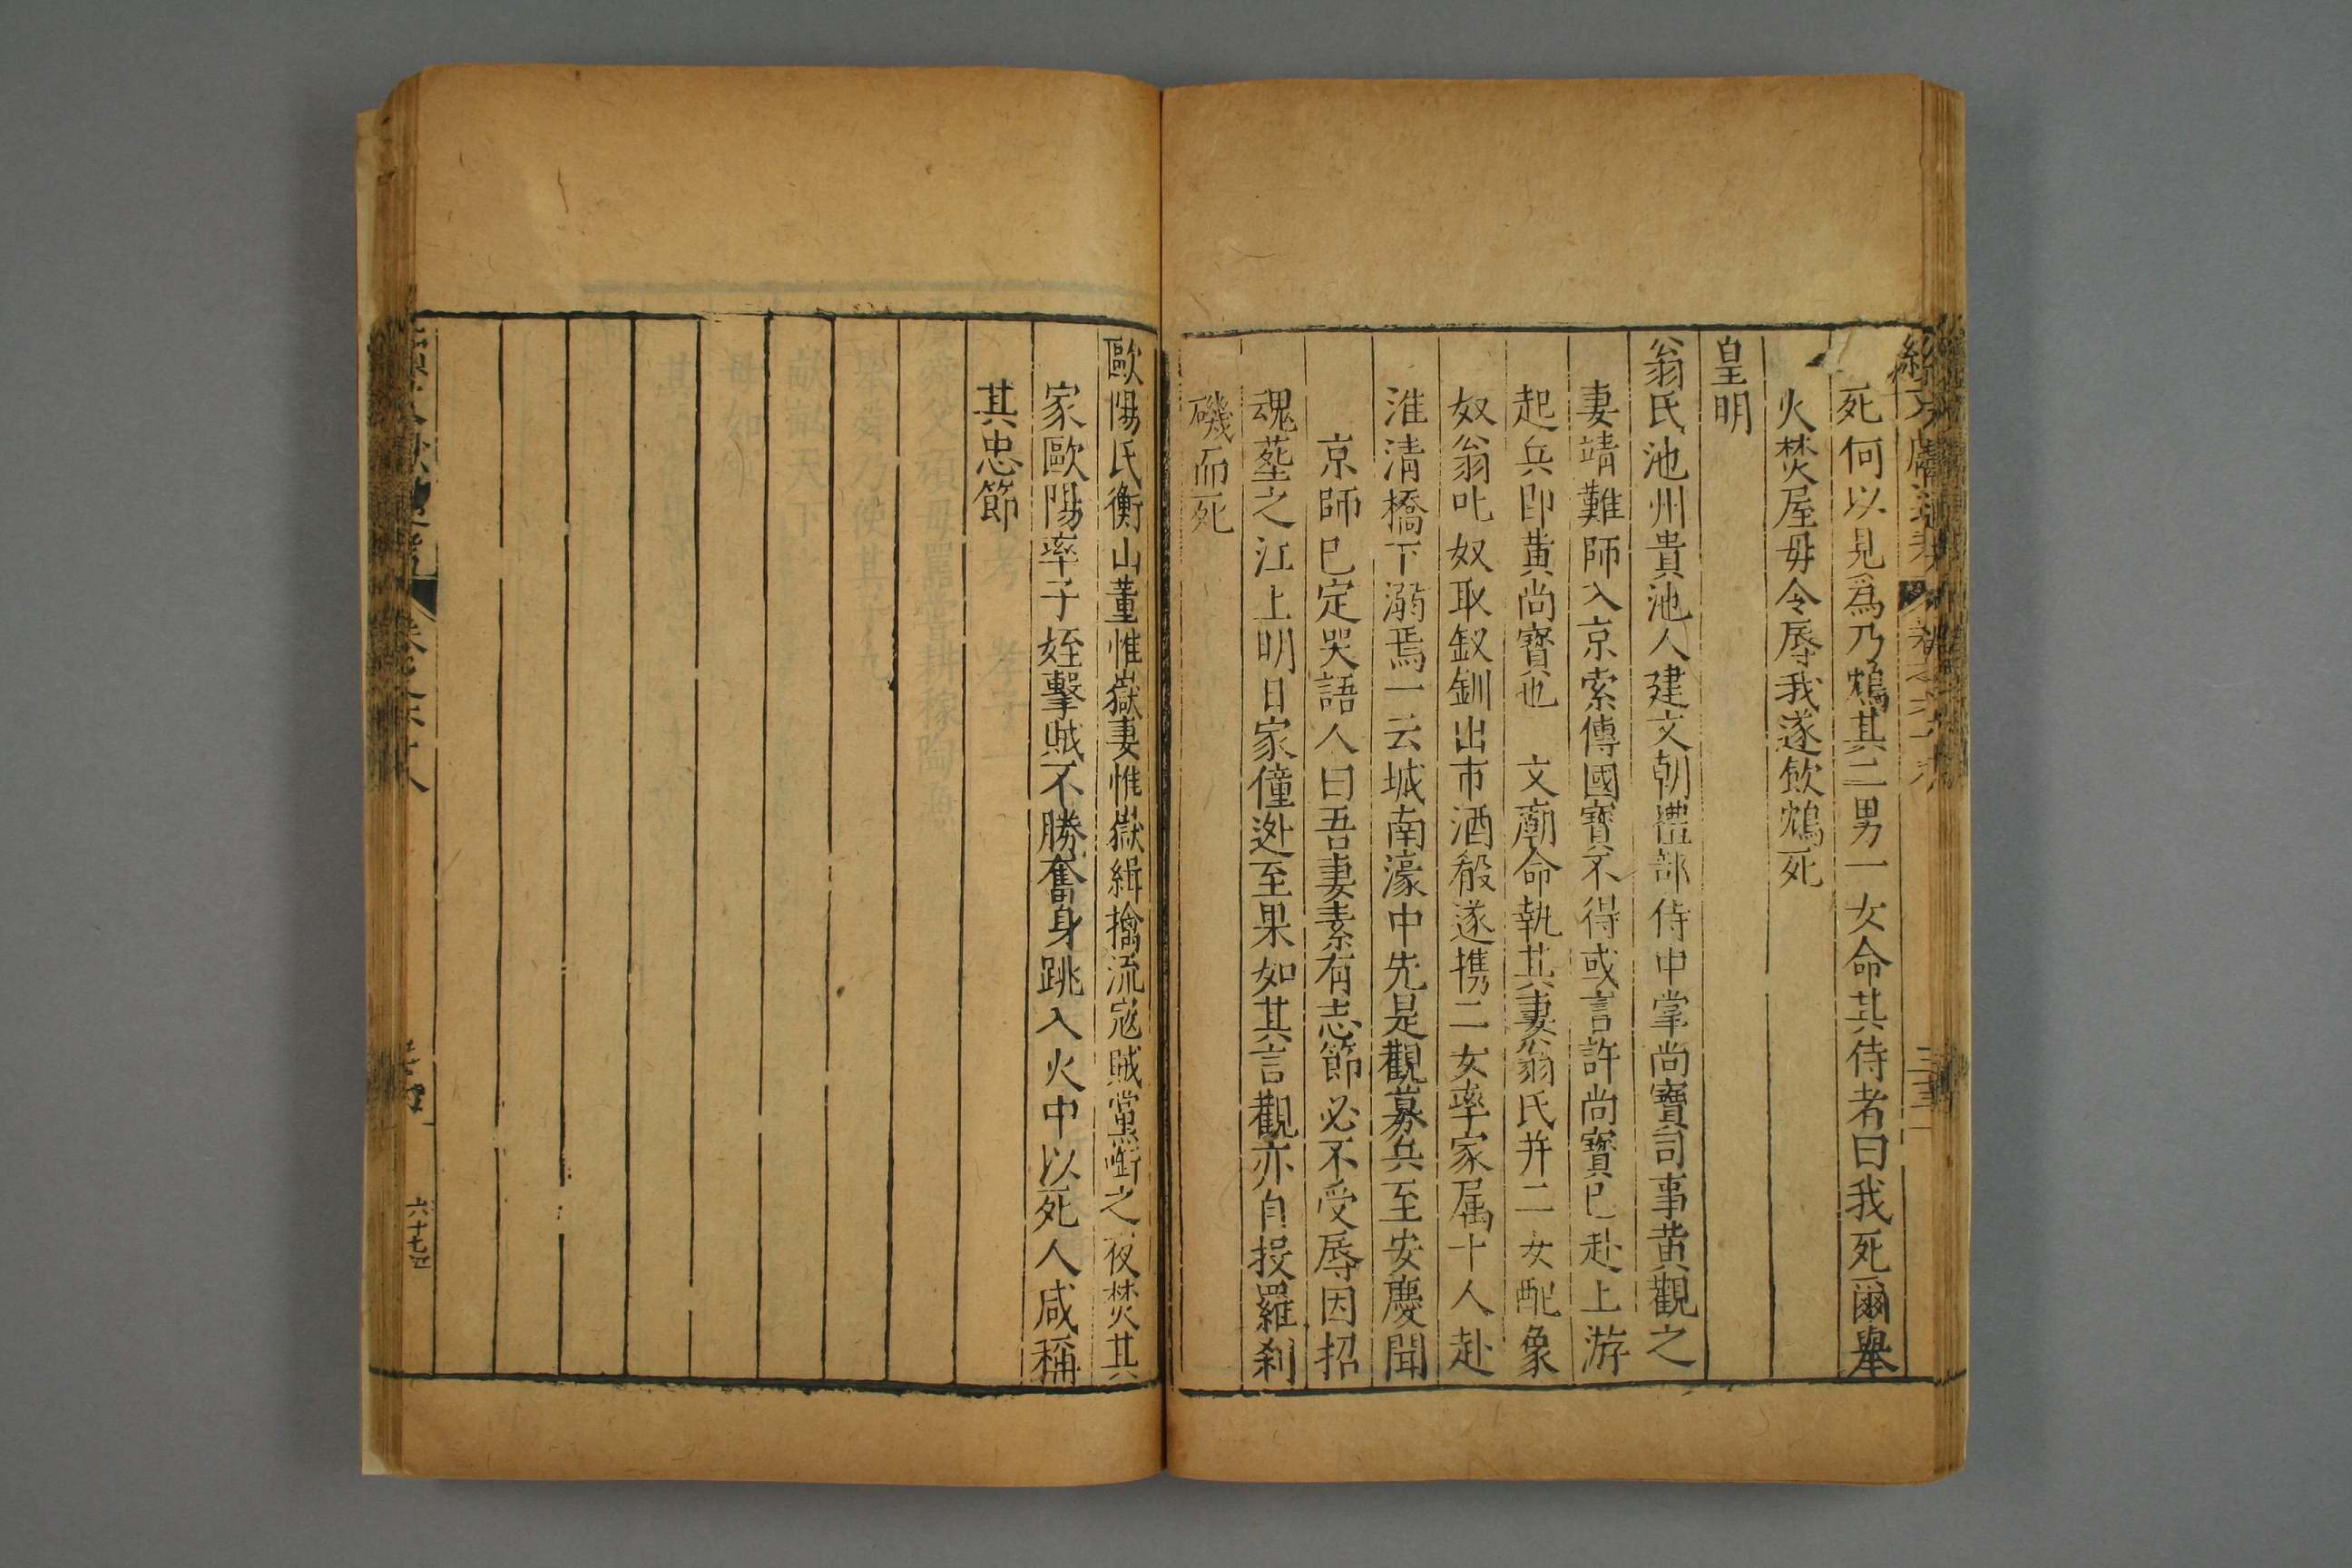 死何以見爲乃鴆其二男一女命其侍者曰我死爾舉
火焚屋毋令辱我遂飲鴆死
皇明
翁氏池州貴池人建文朝禮部侍中掌尚寶司事黃觀之
妻靖難師入京索傳國寶不得或言許尚寶已赴上游
起兵即黃尚寶也　文廟命執其妻翁氏并二女配象
奴翁叱奴取釵釧出市酒殽遂携二女率家属十人赴
淮清橋下溺焉一云城南濠中先是觀募兵至安慶聞
京師已定哭語人曰吾妻素有志節必不受辱因招
魂葬之江上明日家僮迯至果如其言觀亦自投羅刹
磯而死
歐陽氏衡山董惟嶽妻惟嶽緝擒流寇賊黨啣之夜焚其
家歐陽率子姪擊賊不勝奮身跳入火中以死人咸稱
其忠節